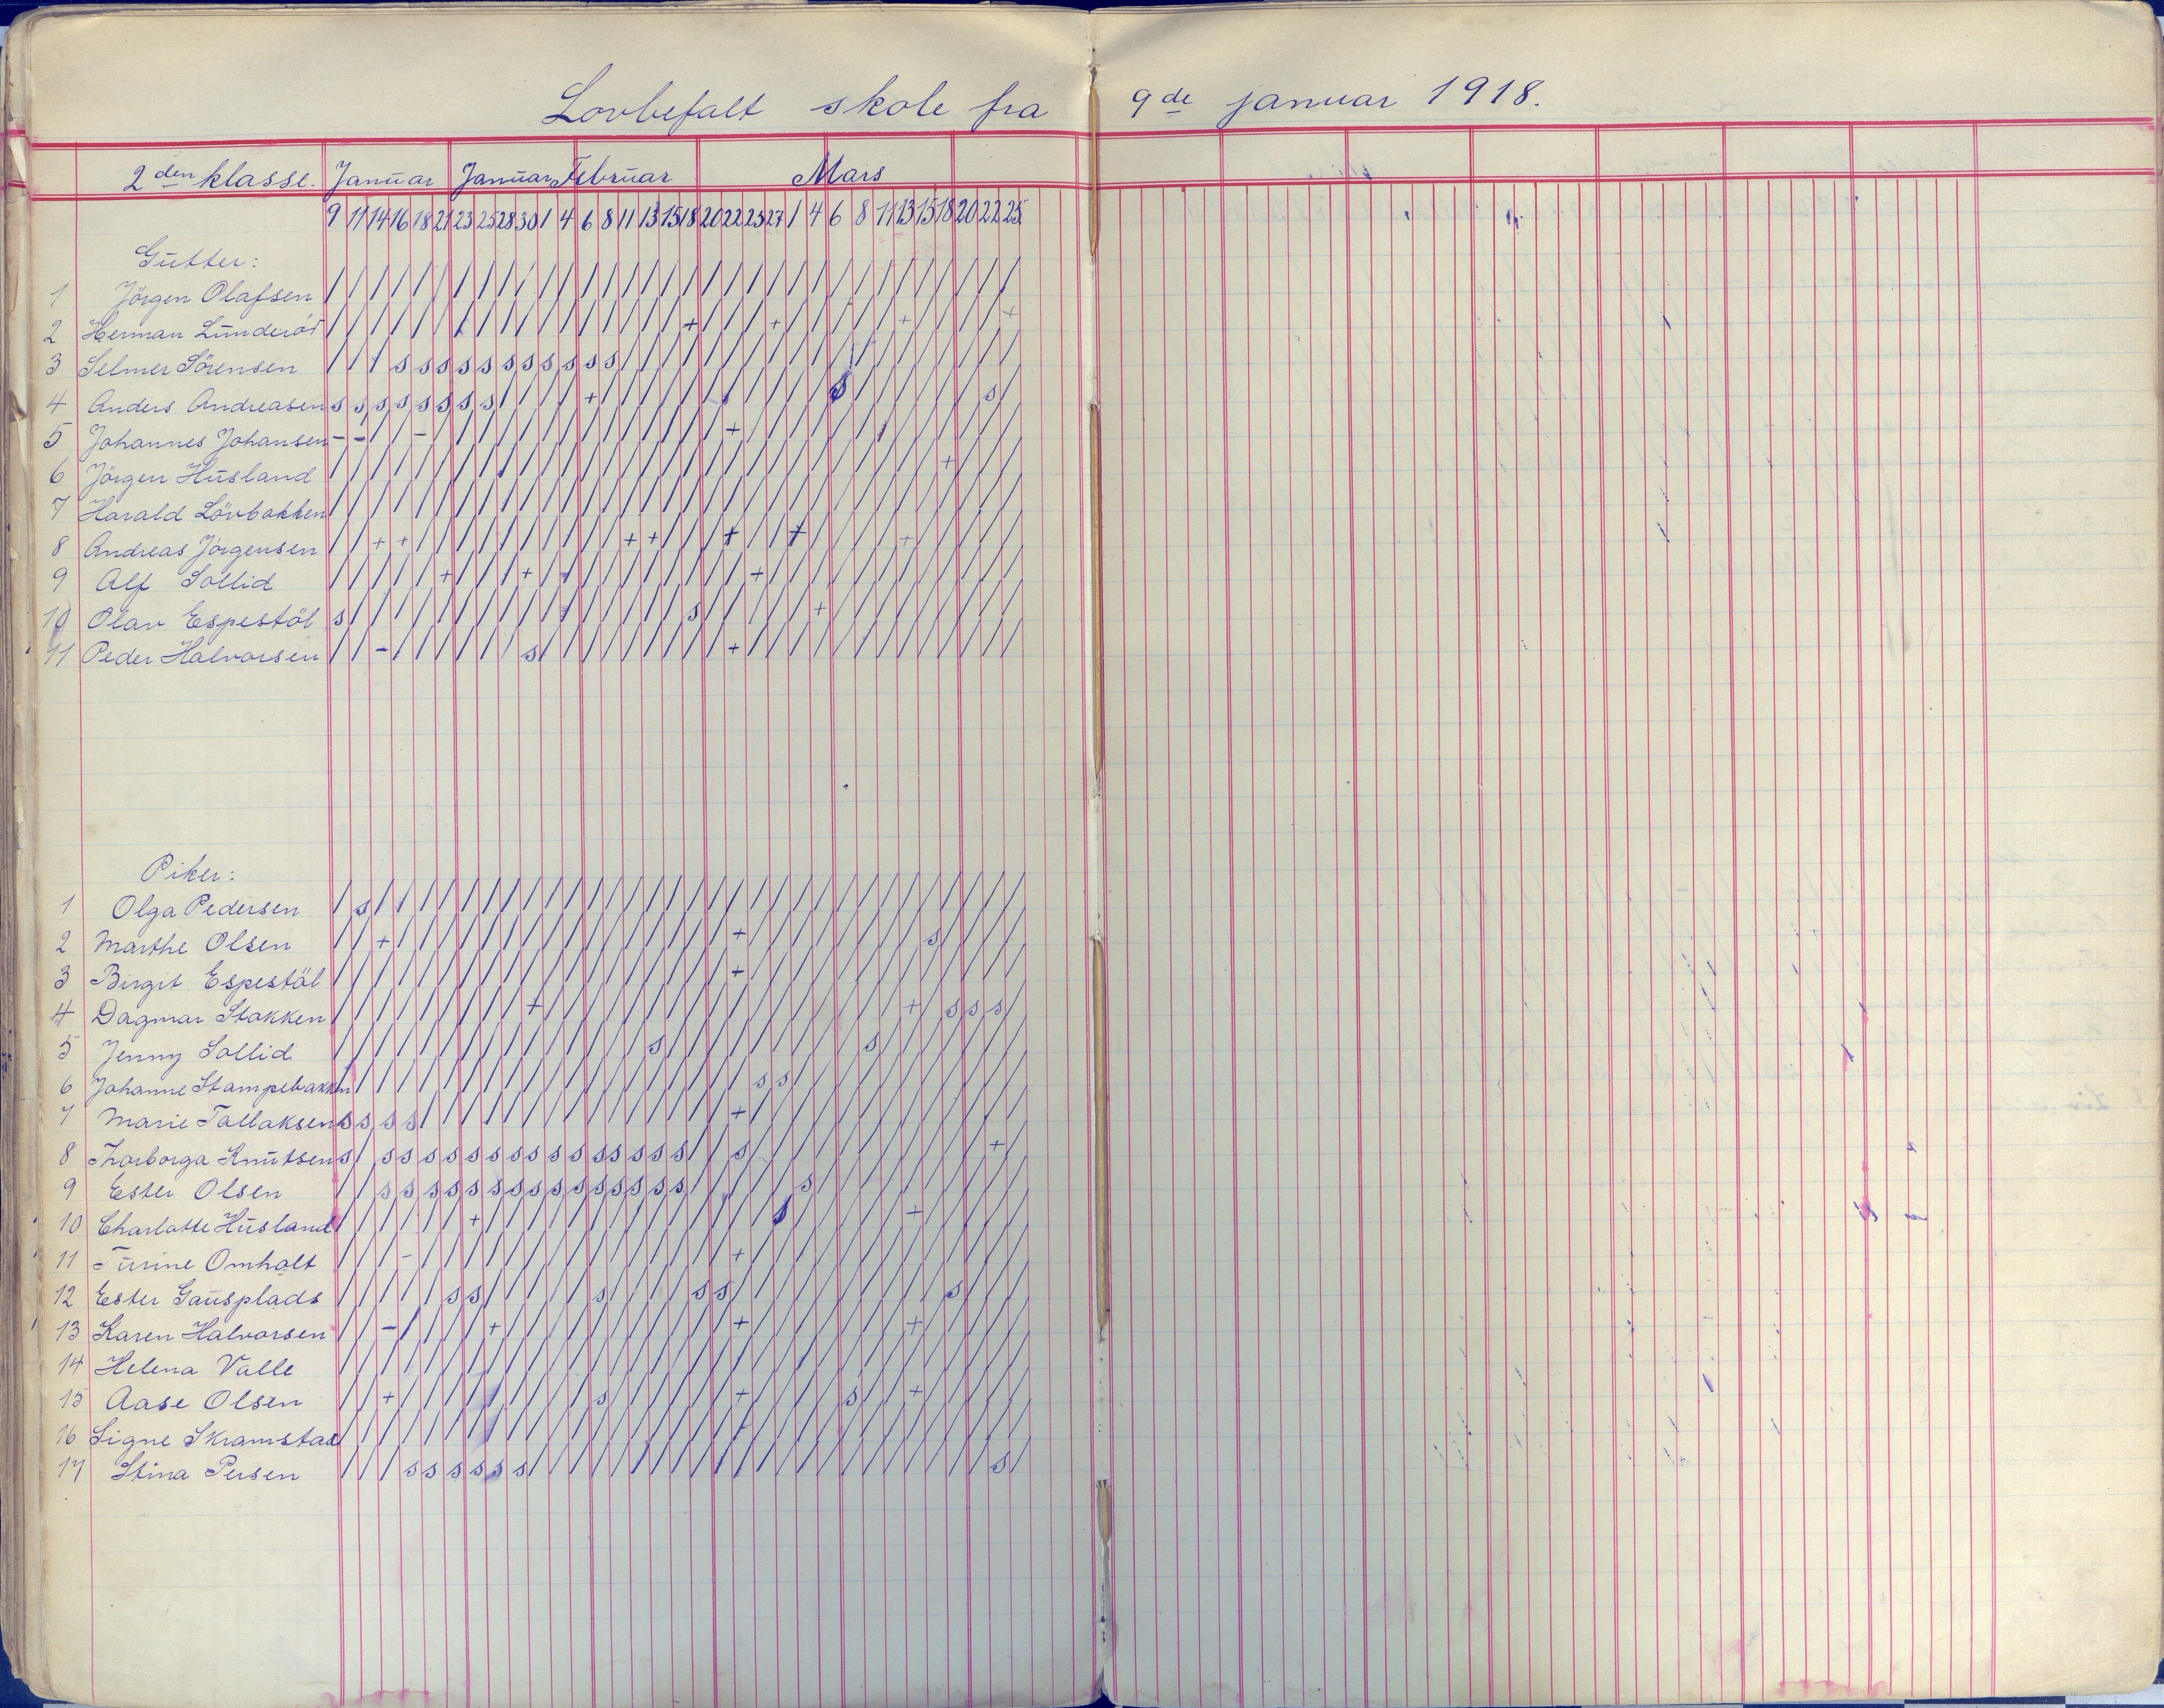 Lovbefalt skole fra 9de januar 1918.
2den klasse. Januar Januar Februar Mars
9 11 14 16 18 21 23 25 28 30 1 4 6 8 11 13 15 18 20 22 25 27 1 4 6 8 11 13 15 18 20 22 25
Gutter:
1 Jörgen Olafsen / / / / / / / / / / / / / / / / / / / / / / / / / / / / / / / / /
2 Herman Lunderöd / / / / / / / / / / / / / / / / / + / / / + / / / / / + / / / / +
3 Selmer Sörensen / / / s s s s s s s s s s s / / / / / / / / / / / / / / / / / / /
4 Anders Andreasen s s s s s s s s / / / / + / / / / / / / / / / / s / / / / / / s /
5 Johannes Johansen - - / / - / / / / / / / / / / / / / / + / / / / / / / / / / / / /
6 Jörgen Husland / / / / / / / / / / / / / / / / / / / / / / / / / / / / / + / / /
7 Harald Lövbakken / / / / / / / / / / / / / / / / / / / / / / / / / / / / / / / / /
8 Andreas Jörgensen / / + + / / / / / / / / / / + + / / / + / / + / / / / + / / / / /
9 Alf Sollid / / / / / + / / / + / + / / / / / / / / + / / / / / / / / / / / /
10 Olav Espestöl s / / / / / / / / / / / / / / / / s / / / / / + / / / / / / / / /
11 Peder Halvorsen / / - / / / / / / s / / / / / / / / / + / / / / / / / / / / / / /
Piker:
1 Olga Pedersen / s / / / / / / / / / / / / / / / / / / / / / / / / / / / / / / /
2 Marthe Olsen / / + / / / / / / / / / / / / / / / / + / / / / / / / / s / / / /
3 Birgit Espestöl / / / / / / / / / / / / / / / / / / / + / / / / / / / / / / / / /
4 Dagmar Stakken / / / / / / / / / + / / / / / / / / / / / / / / / / / + / s s s /
5 Jenny Sollid / / / / / / / / / / / / / / / s / / / / / / / / / s / / / / / / /
6 Johanne Stampebakken / / / / / / / / / / / / / / / / / / / / s s / / / / / / / / / / /
7 Marie Tallaksen s s s s / / / / / / / / / / / / / / / + / / / / / / / / / / / / /
8 Thorborga Knutsen s / s s s s s s s s s s s s s s s / / s / / / / / / / / / / / + /
9 Ester Olsen / / s s s s s s s s s s s s s s s / / / / / s / / / / / / / / / /
10 Charlotte Husland / / / / / / + / / / / / / / / / / / / / / s / / / / / + / / / / /
11 Turine Omholt / / / - / / / / / / / / / / / / / / / + / / / / / / / / / / / / /
12 Ester Gausplads / / / / / s s / / / / / s / / / / s s / / / / / / / / / / s / / /
13 Karen Halvorsen / / - / / / / + / / / / / / / / / / / + / / / / / / / + / / / / /
14 Helena Valle / / / / / / / / / / / / / / / / / / / / / / / / / / / / / / / / /
15 Aase Olsen / / + / / / / / / / / / s / / / / / / + / / / / s / / + / / / / /
16 Signe Skramstad / / / / / / / / / / / / / / / / / / / / / / / / / / / / / / / / /
17 Stina Persen / / / s s s s s s / / / / / / / / / / / / / / / / / / / / / / s /